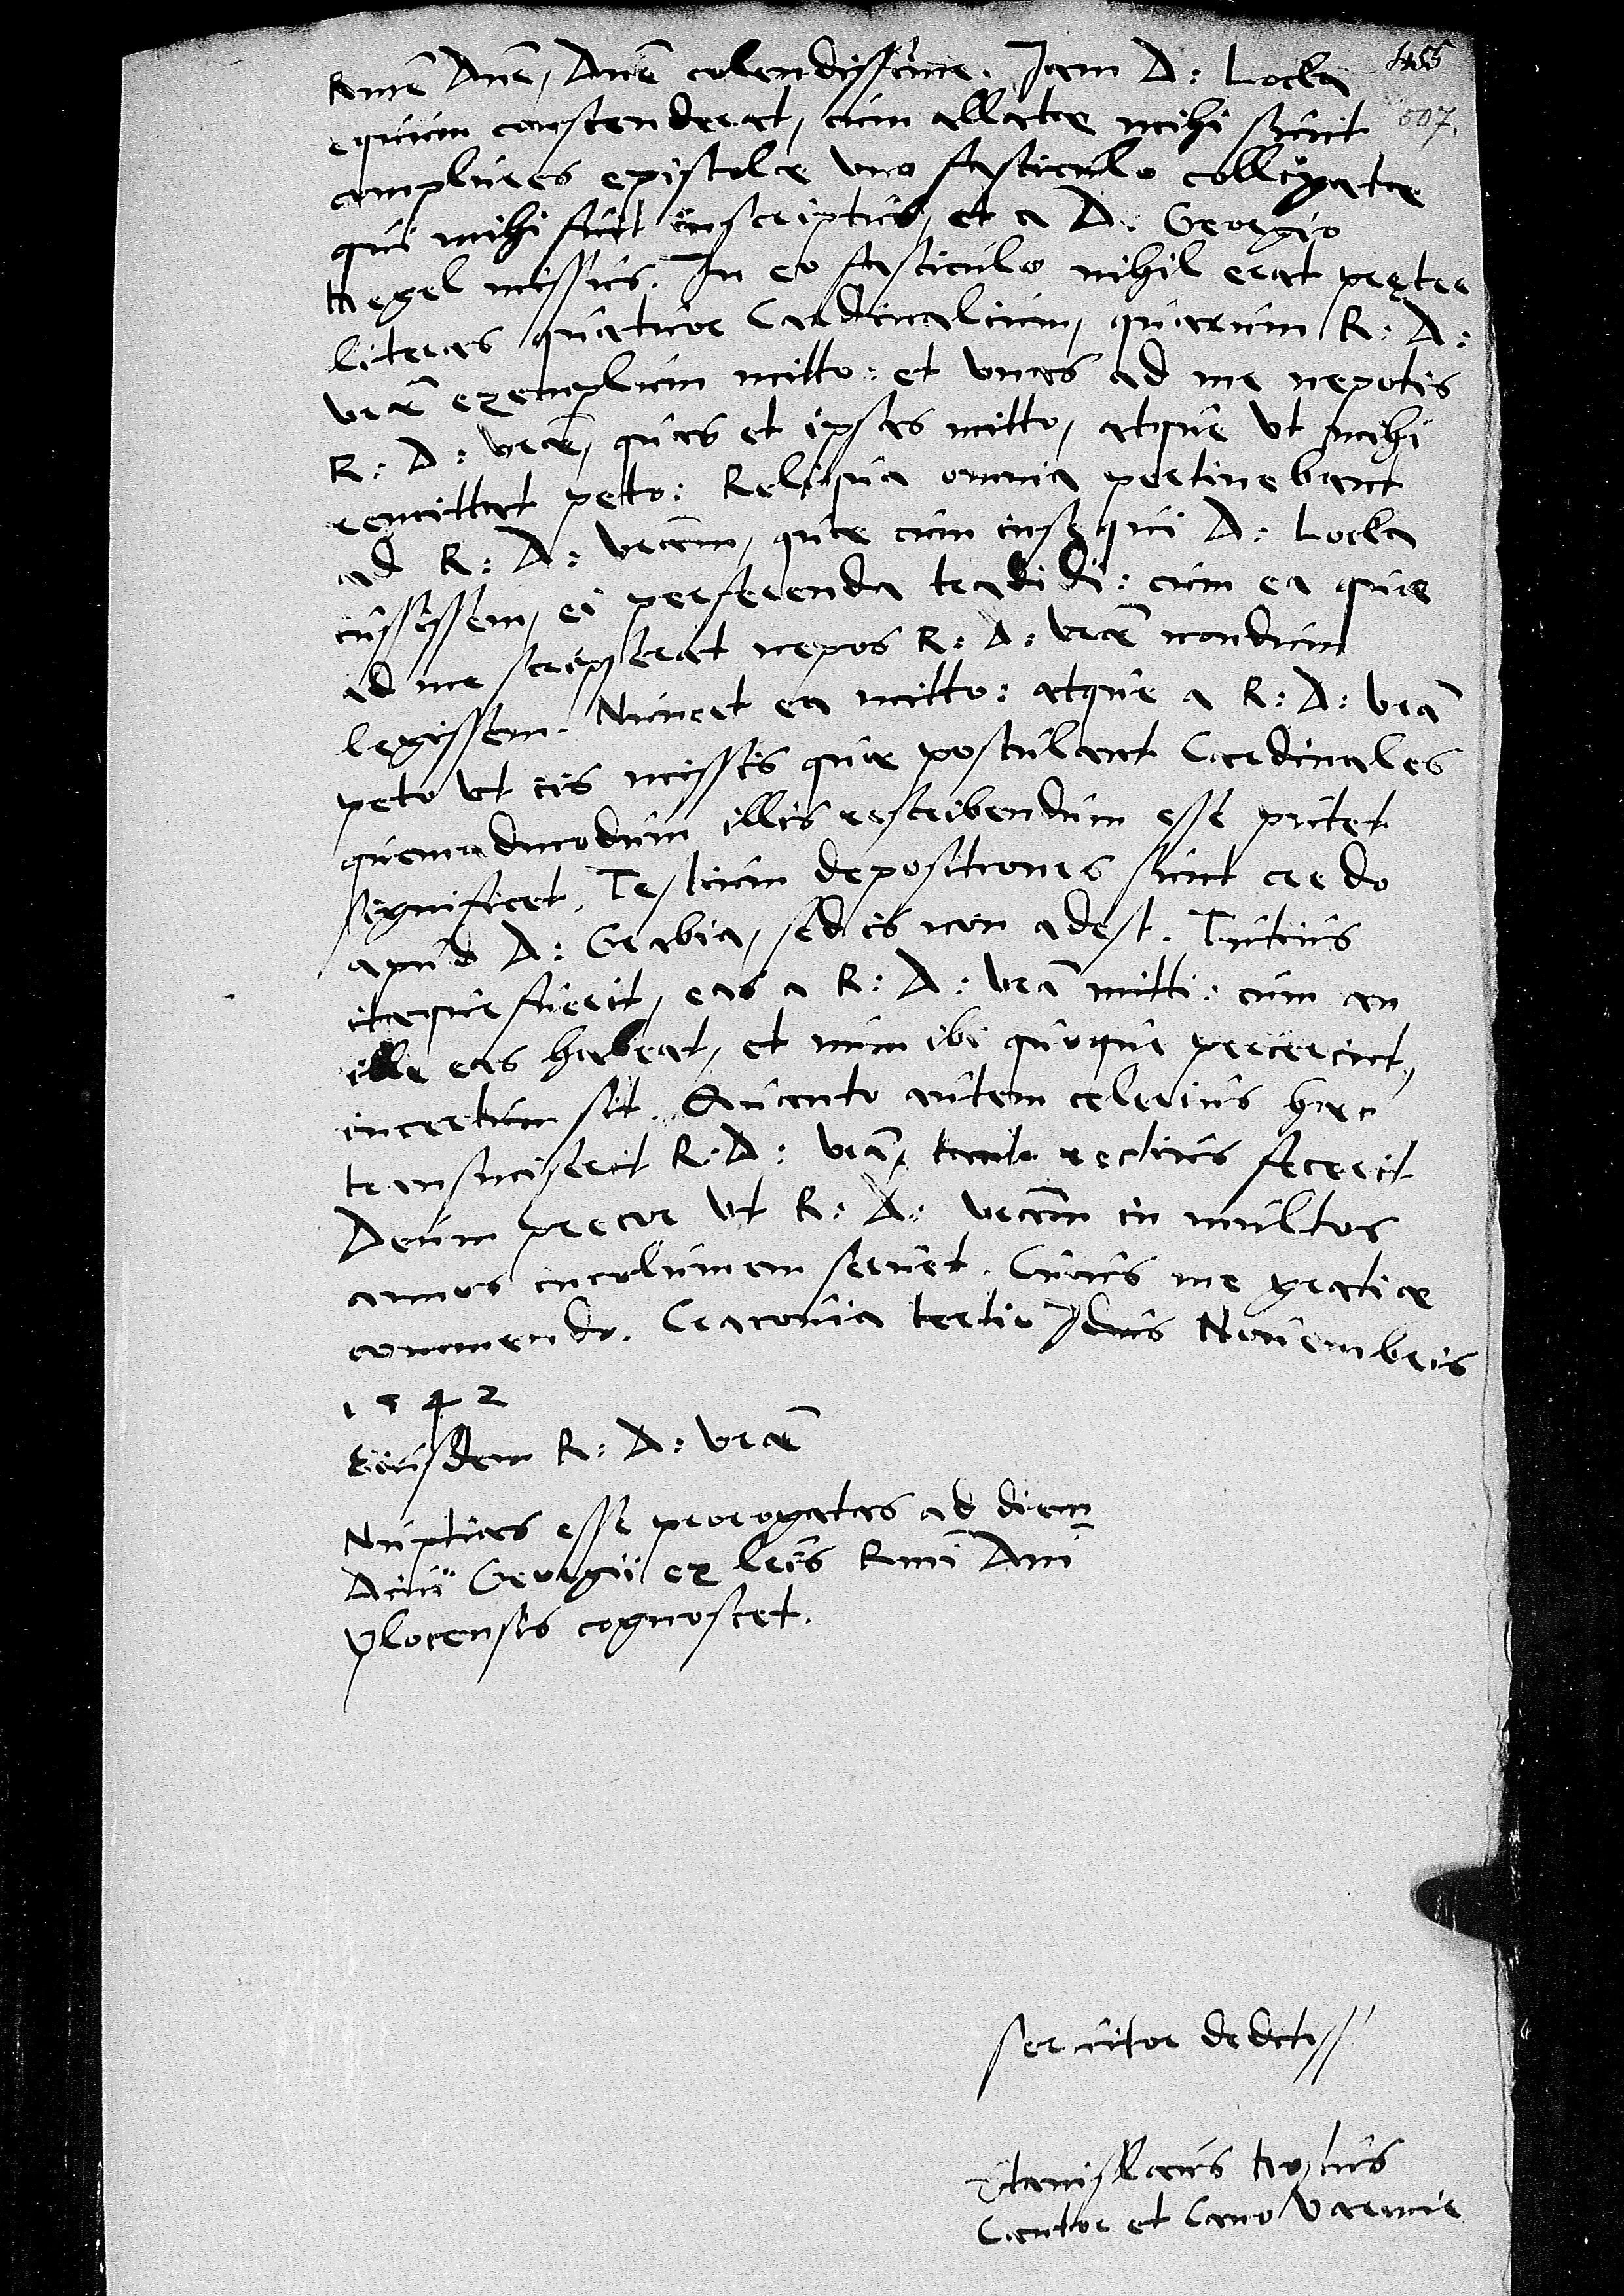 455
Rme Dne, Dne colendissime. Iam D: Locka
607.
equum conscenderat, cum allatae mihi sunt
complures epistolae uno fasciculo colligatae
qui mihi fuit inscriptus, et a D. Georgio
Hegel missus. In eo fasciculo nihil erat pręter
literas quatuor Cardinalium, quarum R: D:
vrae exemplum mitto: et unas ad me nepotis
R: D: vrae, quas et ipsas mitto, atque ut mihi
remittat peto: Reliqua omnia pertinebant
ad R: D: vram, quae cum insequi D: Locka
iussissem, ei perferenda tradidi: cum ea quae
ad me scripserat nepos R: D: vrae nondum
legissem. Nunc et ea mitto: atque a R: D: vra
peto ut iis missis quae postulant Cardinales
quemadmodum illis rescribendum esse putet
significet. Testium depositiones sunt credo
apud D: Grabia, sed is non adest. Tutius
itaque fuerit, eas a R: D: vra mitti: cum an
ille eas habeat, et num ibi quoque perierint,
incertum sit. Quanto autem celerius haec
transmiserit R: D: vra, tanto rectius fecerit
Deum precor ut R: D: vram in multos
annos incolumem servet. Cuius me gratiae
commendo. Cracovia tertio Idus Novembris
1542
Eiusdem R: D: vrae
Nuptias esse prorogatas ad diem
Divi Georgii ex lris Rmi Dni
Plocensis cognoscet.
servitor deditiss
Stanislaus Hosius
Cantor et Cano Varmie